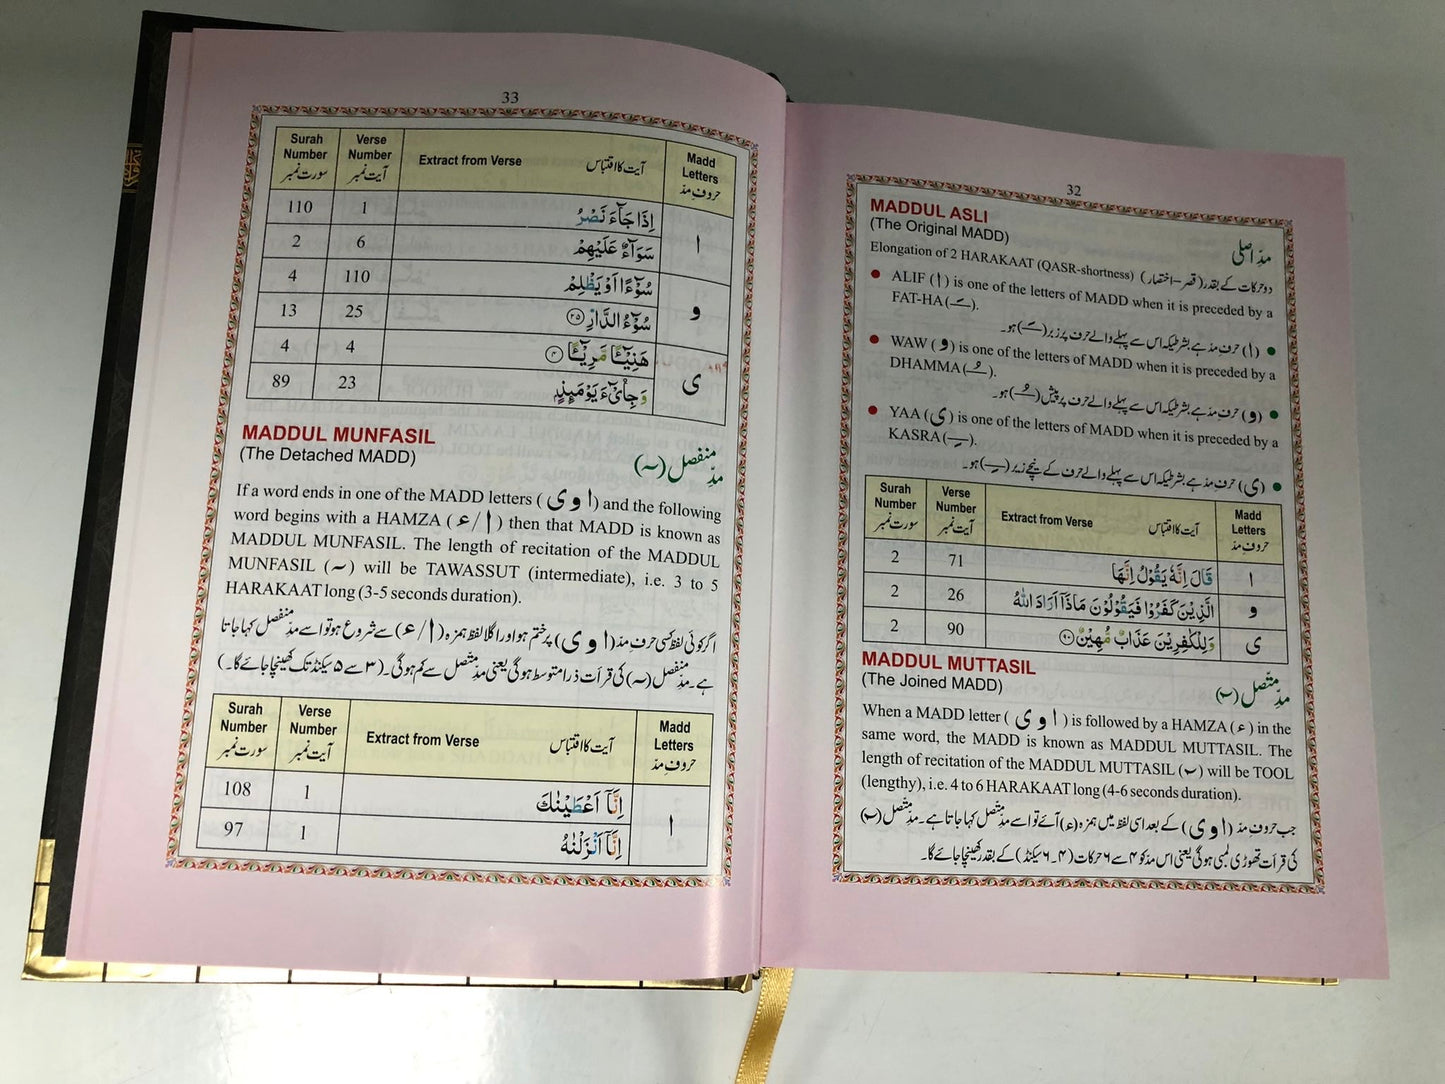 32
MADDUL ASLI
(The Original MADD)
مدّ اصلی
Elongation of 2 HARAKAAT (QASR-shortness) دو حرکات کے بقدر (قصر-اختصار)
ALIF (ا) is one of the letters of MADD when it is preceded by a
FAT-HA (ـَـ).
(ا) حرف مدّ ہے بشرطیکہ اس سے پہلے والے حرف پر زبر (ـَـ) ہو۔
WAW (و) is one of the letters of MADD when it is preceded by a
DHAMMA (ـُـ).
(و) حرف مدّ ہے بشرطیکہ اس سے پہلے والے حرف پر پیش (ـُـ) ہو۔
YAA (ی) is one of the letters of MADD when it is preceded by a
KASRA (ـِـ).
(ی) حرف مدّ ہے بشرطیکہ اس سے پہلے والے حرف کے نیچے زیر (ـِـ) ہو۔
Surah Number سورت نمبر
Verse Number آیت نمبر
Extract from Verse آیت کا اقتباس
Madd Letters حروفِ مدّ
2 71 قَالَ اِنَّهٗ يَقُوْلُ اِنَّهَا ا
2 26 الَّذِيْنَ كَفَرُوْا فَيَقُوْلُوْنَ مَاذَآ اَرَادَ اللّٰهُ و
2 90 وَلِلْكٰفِرِيْنَ عَذَابٌ مُّهِيْنٌ ۹۰ ی
MADDUL MUTTASIL
(The Joined MADD)
مدّ متّصل (ۤ)
When a MADD letter ( ا و ی ) is followed by a HAMZA (ء) in the
same word, the MADD is known as MADDUL MUTTASIL. The
length of recitation of the MADDUL MUTTASIL (ۤ) will be TOOL
(lengthy), i.e. 4 to 6 HARAKAAT long (4-6 seconds duration).
جب حروف مدّ (ا و ی) کے بعد اسی لفظ میں ہمزہ (ء) آئے تو اسے مدِّ متّصل کہا جاتا ہے۔ مدِّ متّصل (ۤ)
کی قرأت تھوڑی لمبی ہوگی یعنی اس مد کو ۴ سے ۶ حرکات (۴-۶ سیکنڈ) کے بقدر کھینچا جائے گا۔
33
Surah Number سورت نمبر
Verse Number آیت نمبر
Extract from Verse آیت کا اقتباس
Madd Letters حروفِ مدّ
110 1 اِذَا جَآءَ نَصْرُ ا
2 6 سَوَآءٌ عَلَيْهِمْ
4 110 سُوْٓءًا اَوْ يَظْلِمْ و
13 25 سُوْٓءُ الدَّارِ ۲۵
4 4 هَنِيْٓـًٔا مَّرِيْٓـًٔا ۴ ی
89 23 وَجِايْٓءَ يَوْمَىِٕذٍۭ
MADDUL MUNFASIL
(The Detached MADD)
مدِّ منفصل (~)
If a word ends in one of the MADD letters ( ا و ی ) and the following
word begins with a HAMZA ( ء / ا ) then that MADD is known as
MADDUL MUNFASIL. The length of recitation of the MADDUL
MUNFASIL (~) will be TAWASSUT (intermediate), i.e. 3 to 5
HARAKAAT long (3-5 seconds duration).
اگر کوئی لفظ کسی حرف مدّ (ا و ی) پر ختم ہو اور اگلا لفظ ہمزہ (ا/ء) سے شروع ہو تو اسے مدِّ منفصل کہا جاتا
ہے۔ مدِّ منفصل (~) کی قرأت ذرا متوسط ہوگی یعنی مدِّ متّصل سے کم ہوگی۔ (۳ سے ۵ سیکنڈ تک کھینچا جائے گا۔)
Surah Number سورت نمبر
Verse Number آیت نمبر
Extract from Verse آیت کا اقتباس
Madd Letters حروفِ مدّ
108 1 اِنَّآ اَعْطَيْنٰكَ ا
97 1 اِنَّآ اَنْزَلْنٰهُ